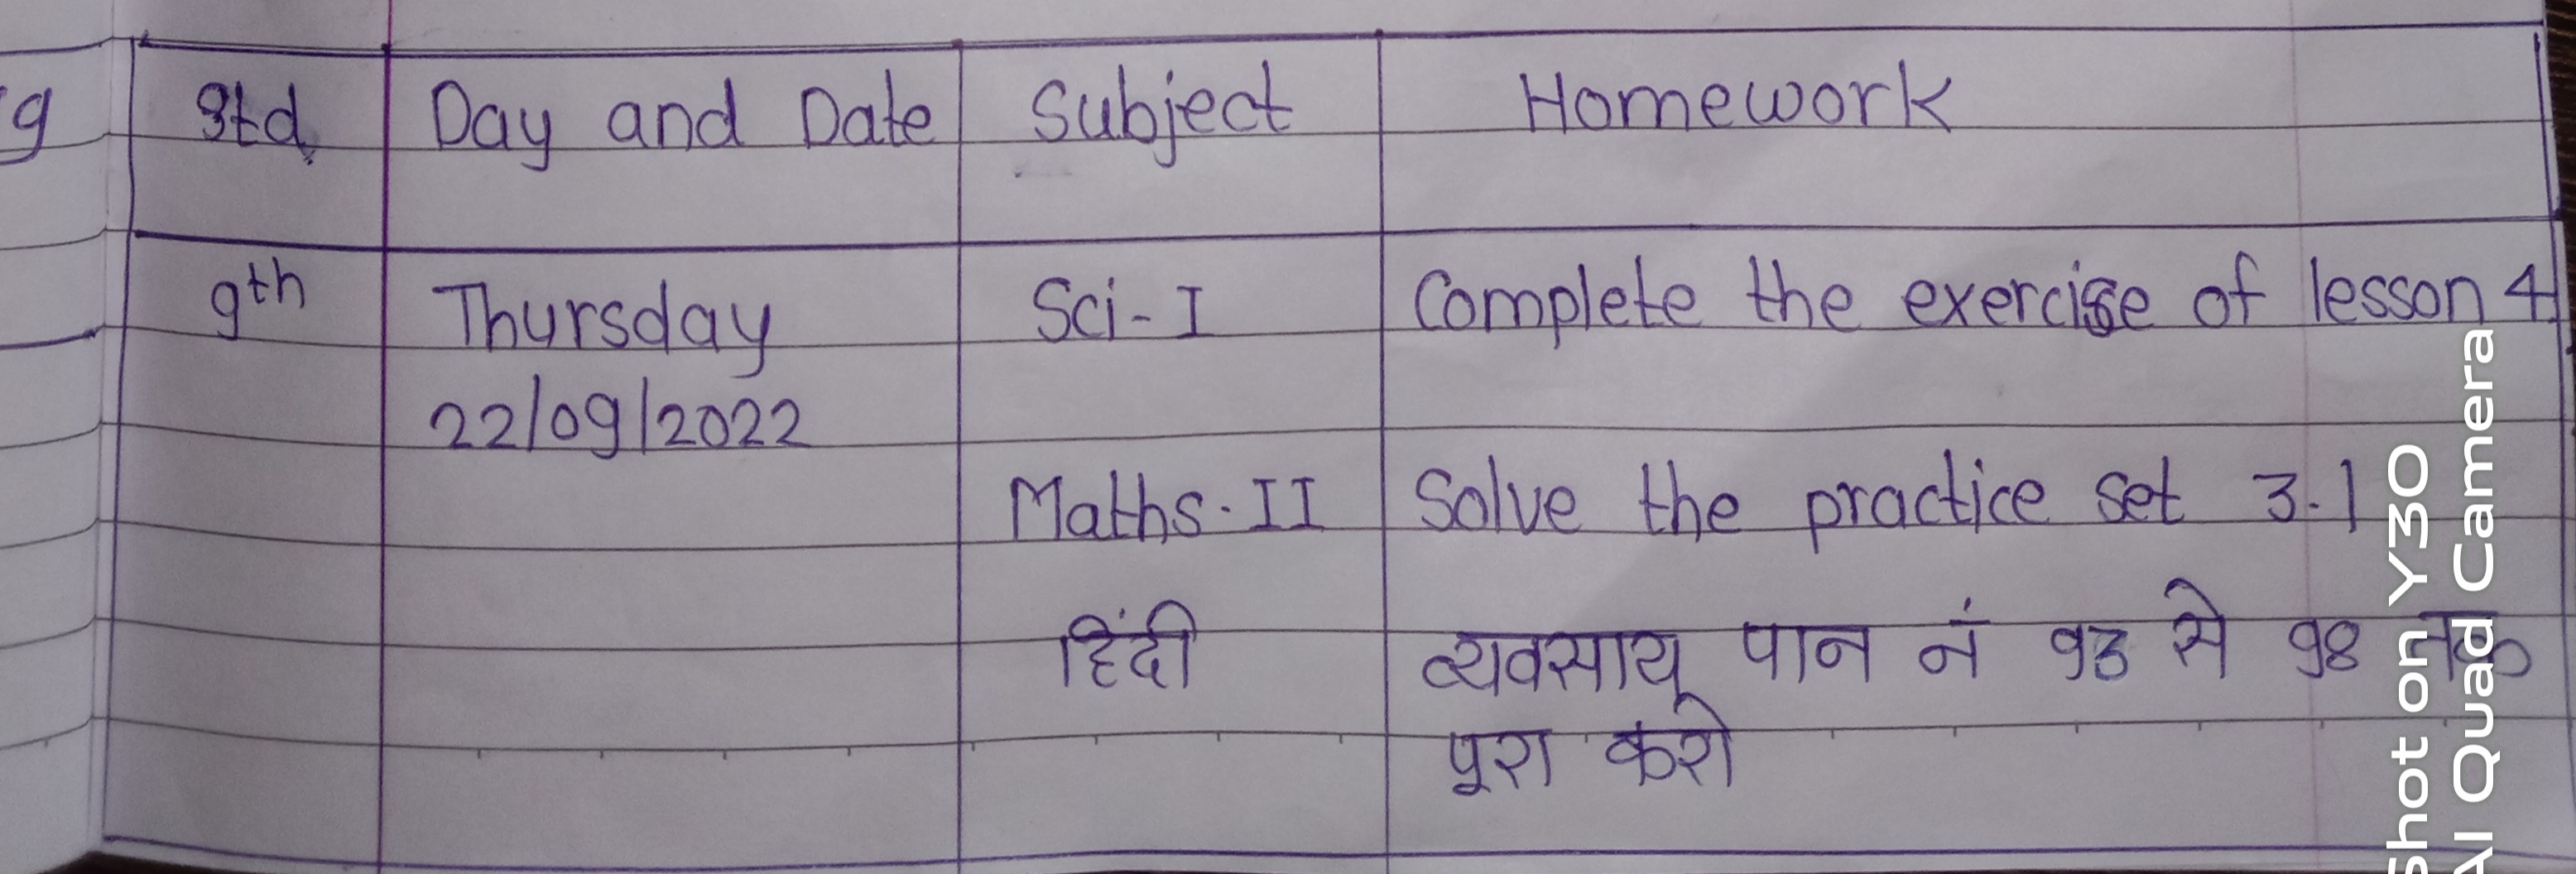 g
Std. Day and Date Subject Homework
9th Thursday Sci-I Complete the exercise of lesson 4
22/09/2022
Maths-II Solve the practice set 3.1
हिंदी व्यवसाय पान नं १३ से १४ तक
पूरा करो
Shot on Y30
AI Quad Camera